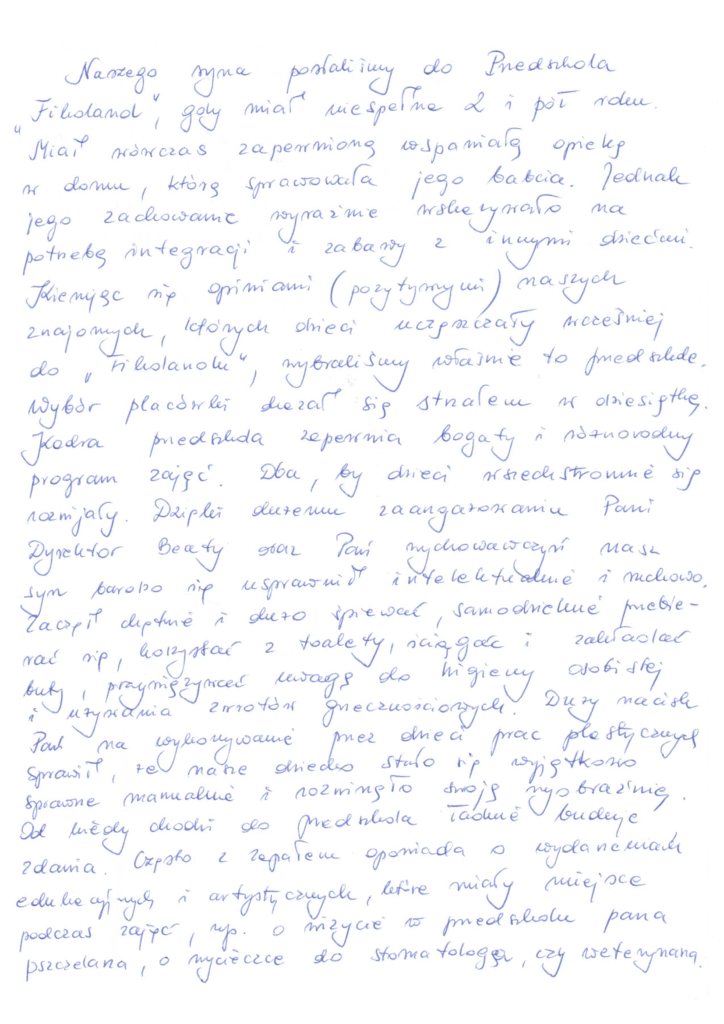 Naszego syna posłaliśmy do Przedszkola
"Fikoland", gdy miał niespełna 2 i pół roku.
Miał wówczas zapewnioną wspaniałą opiekę
w domu, którą sprawowała jego babcia. Jednak
jego zachowanie wyraźnie wskazywało na
potrzebę integracji i zabawy z innymi dziećmi.
Kierując się opiniami (pozytywnymi) naszych
znajomych, których dzieci uczęszczały wcześniej
do "Fikolandu", wybraliśmy właśnie to przedszkole.
Wybór placówki okazał się strzałem w dziesiątkę.
Kadra przedszkola zapewnia bogaty i różnorodny
program zajęć. Dba, by dzieci wszechstronnie się
rozwijały. Dzięki dużemu zaangażowaniu Pani
Dyrektor Beaty oraz Pań wychowawczyń nasz
syn bardzo się usprawnił intelektualnie i ruchowo.
Zaczął chętnie i dużo śpiewać, samodzielnie przebie-
rać się, korzystać z toalety, ściągać i zakładać
buty, przywiązywać uwagę do higieny osobistej
i używania zwrotów grzecznościowych. Duży nacisk
Pań na wykonywanie przez dzieci prac plastycznych
sprawił, że nasze dziecko stało się wyjątkowo
sprawne manualnie i rozwinęło swoją wyobraźnię.
Od kiedy chodzi do przedszkola ładnie buduje
zdania. Często z zapałem opowiada o wydarzeniach
edukacyjnych i artystycznych, które miały miejsce
podczas zajęć, np. o wizycie w przedszkolu pana
pszczelarza, o wycieczce do stomatologa, czy weterynarza.